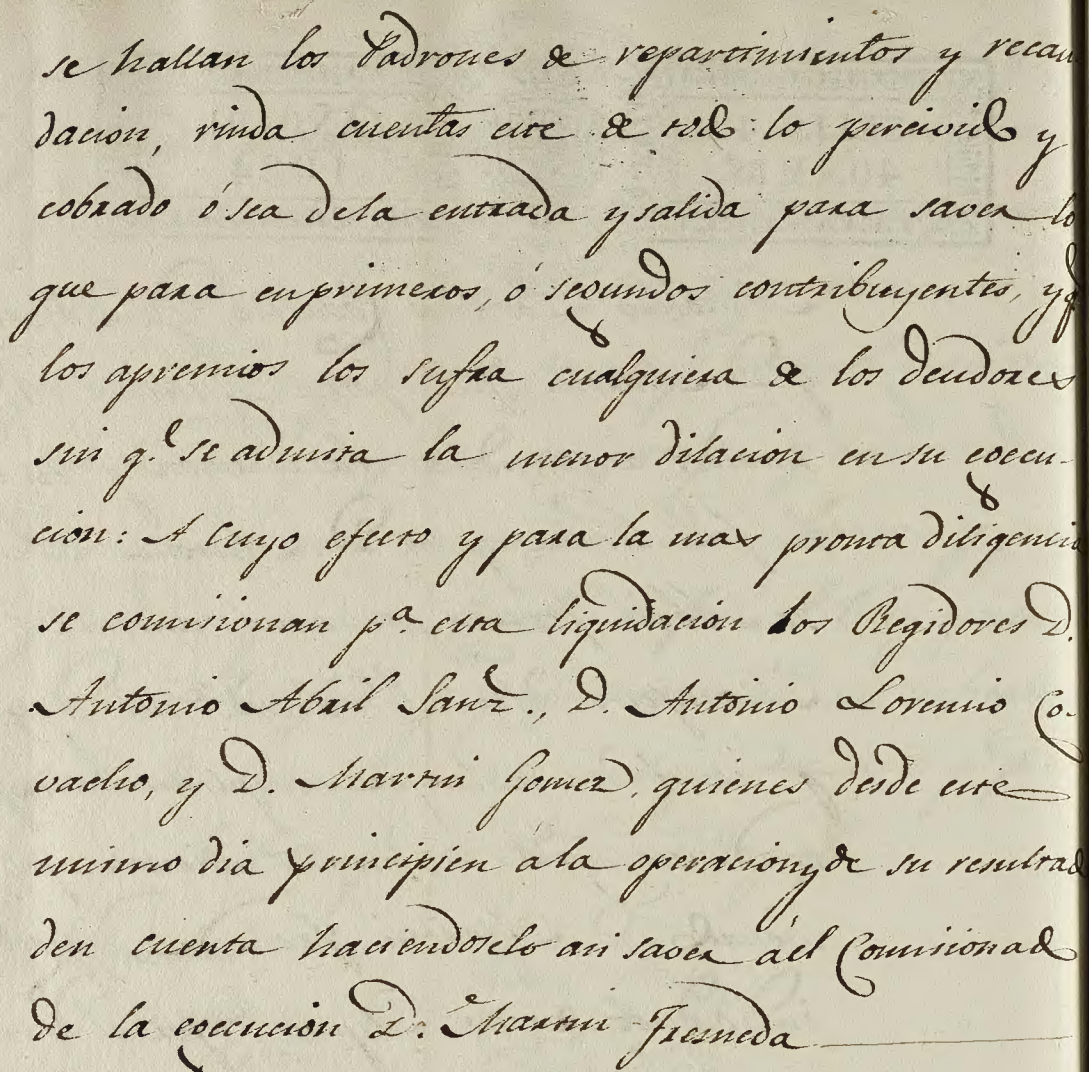 se hallan los Padrones de repartimientos y recau
dacion, rinda cuentas este de todo lo percivido y
cobrado ó sea dela entrada y salida para saver lo
que para en primeros, ó segundos contribuyentes, y q
los apremios los sufra cualquiera de los deudores
sin q.e se admita la menor dilacion en su egecu-
cion: A cuyo efecto y para la mas pronta diligencia
se comisionan p.a esta liquidacion los Regidores D.
Antonio Abril Sanz., D. Antonio Lorenzo Co-
vacho, y D. Martin Gomez, quienes desde este
mismo dia principien ala operacion y de su resultado
den cuenta haciendoselo asi saver áel Comisionado
de la egecucion D. Martin Fresneda